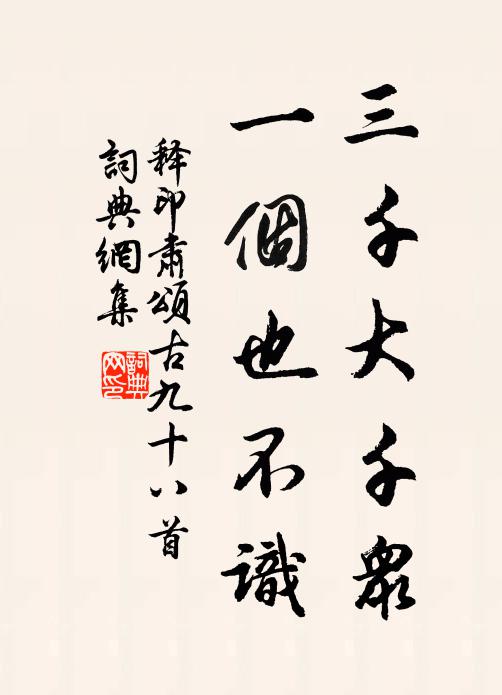 三千大千衆
一個也不識
释印肅頌古九十八首
詞典網集
詞典網印